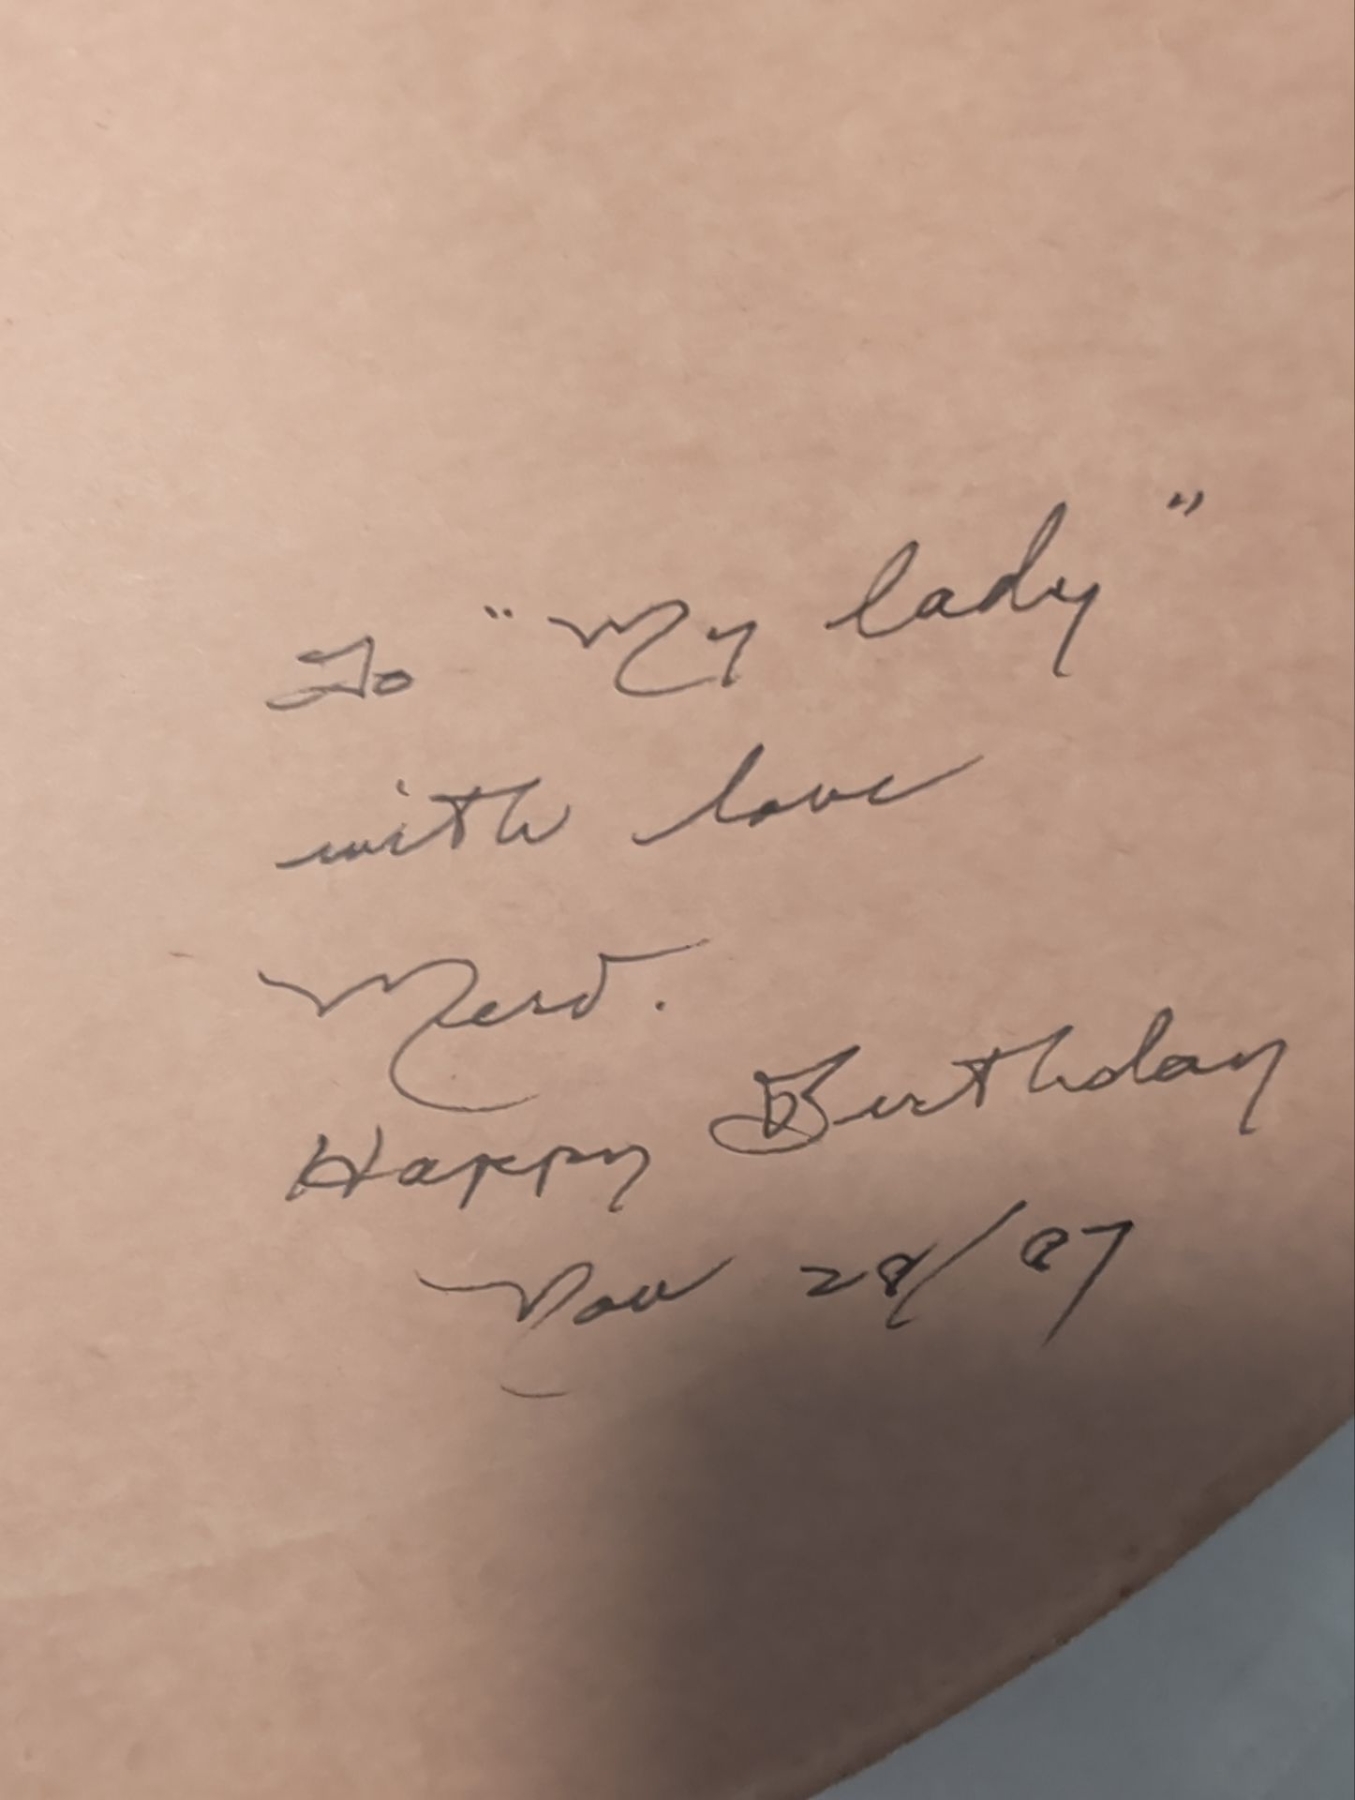 To "My lady"
with love
Merv.
Happy Birthday
Nov 28/87